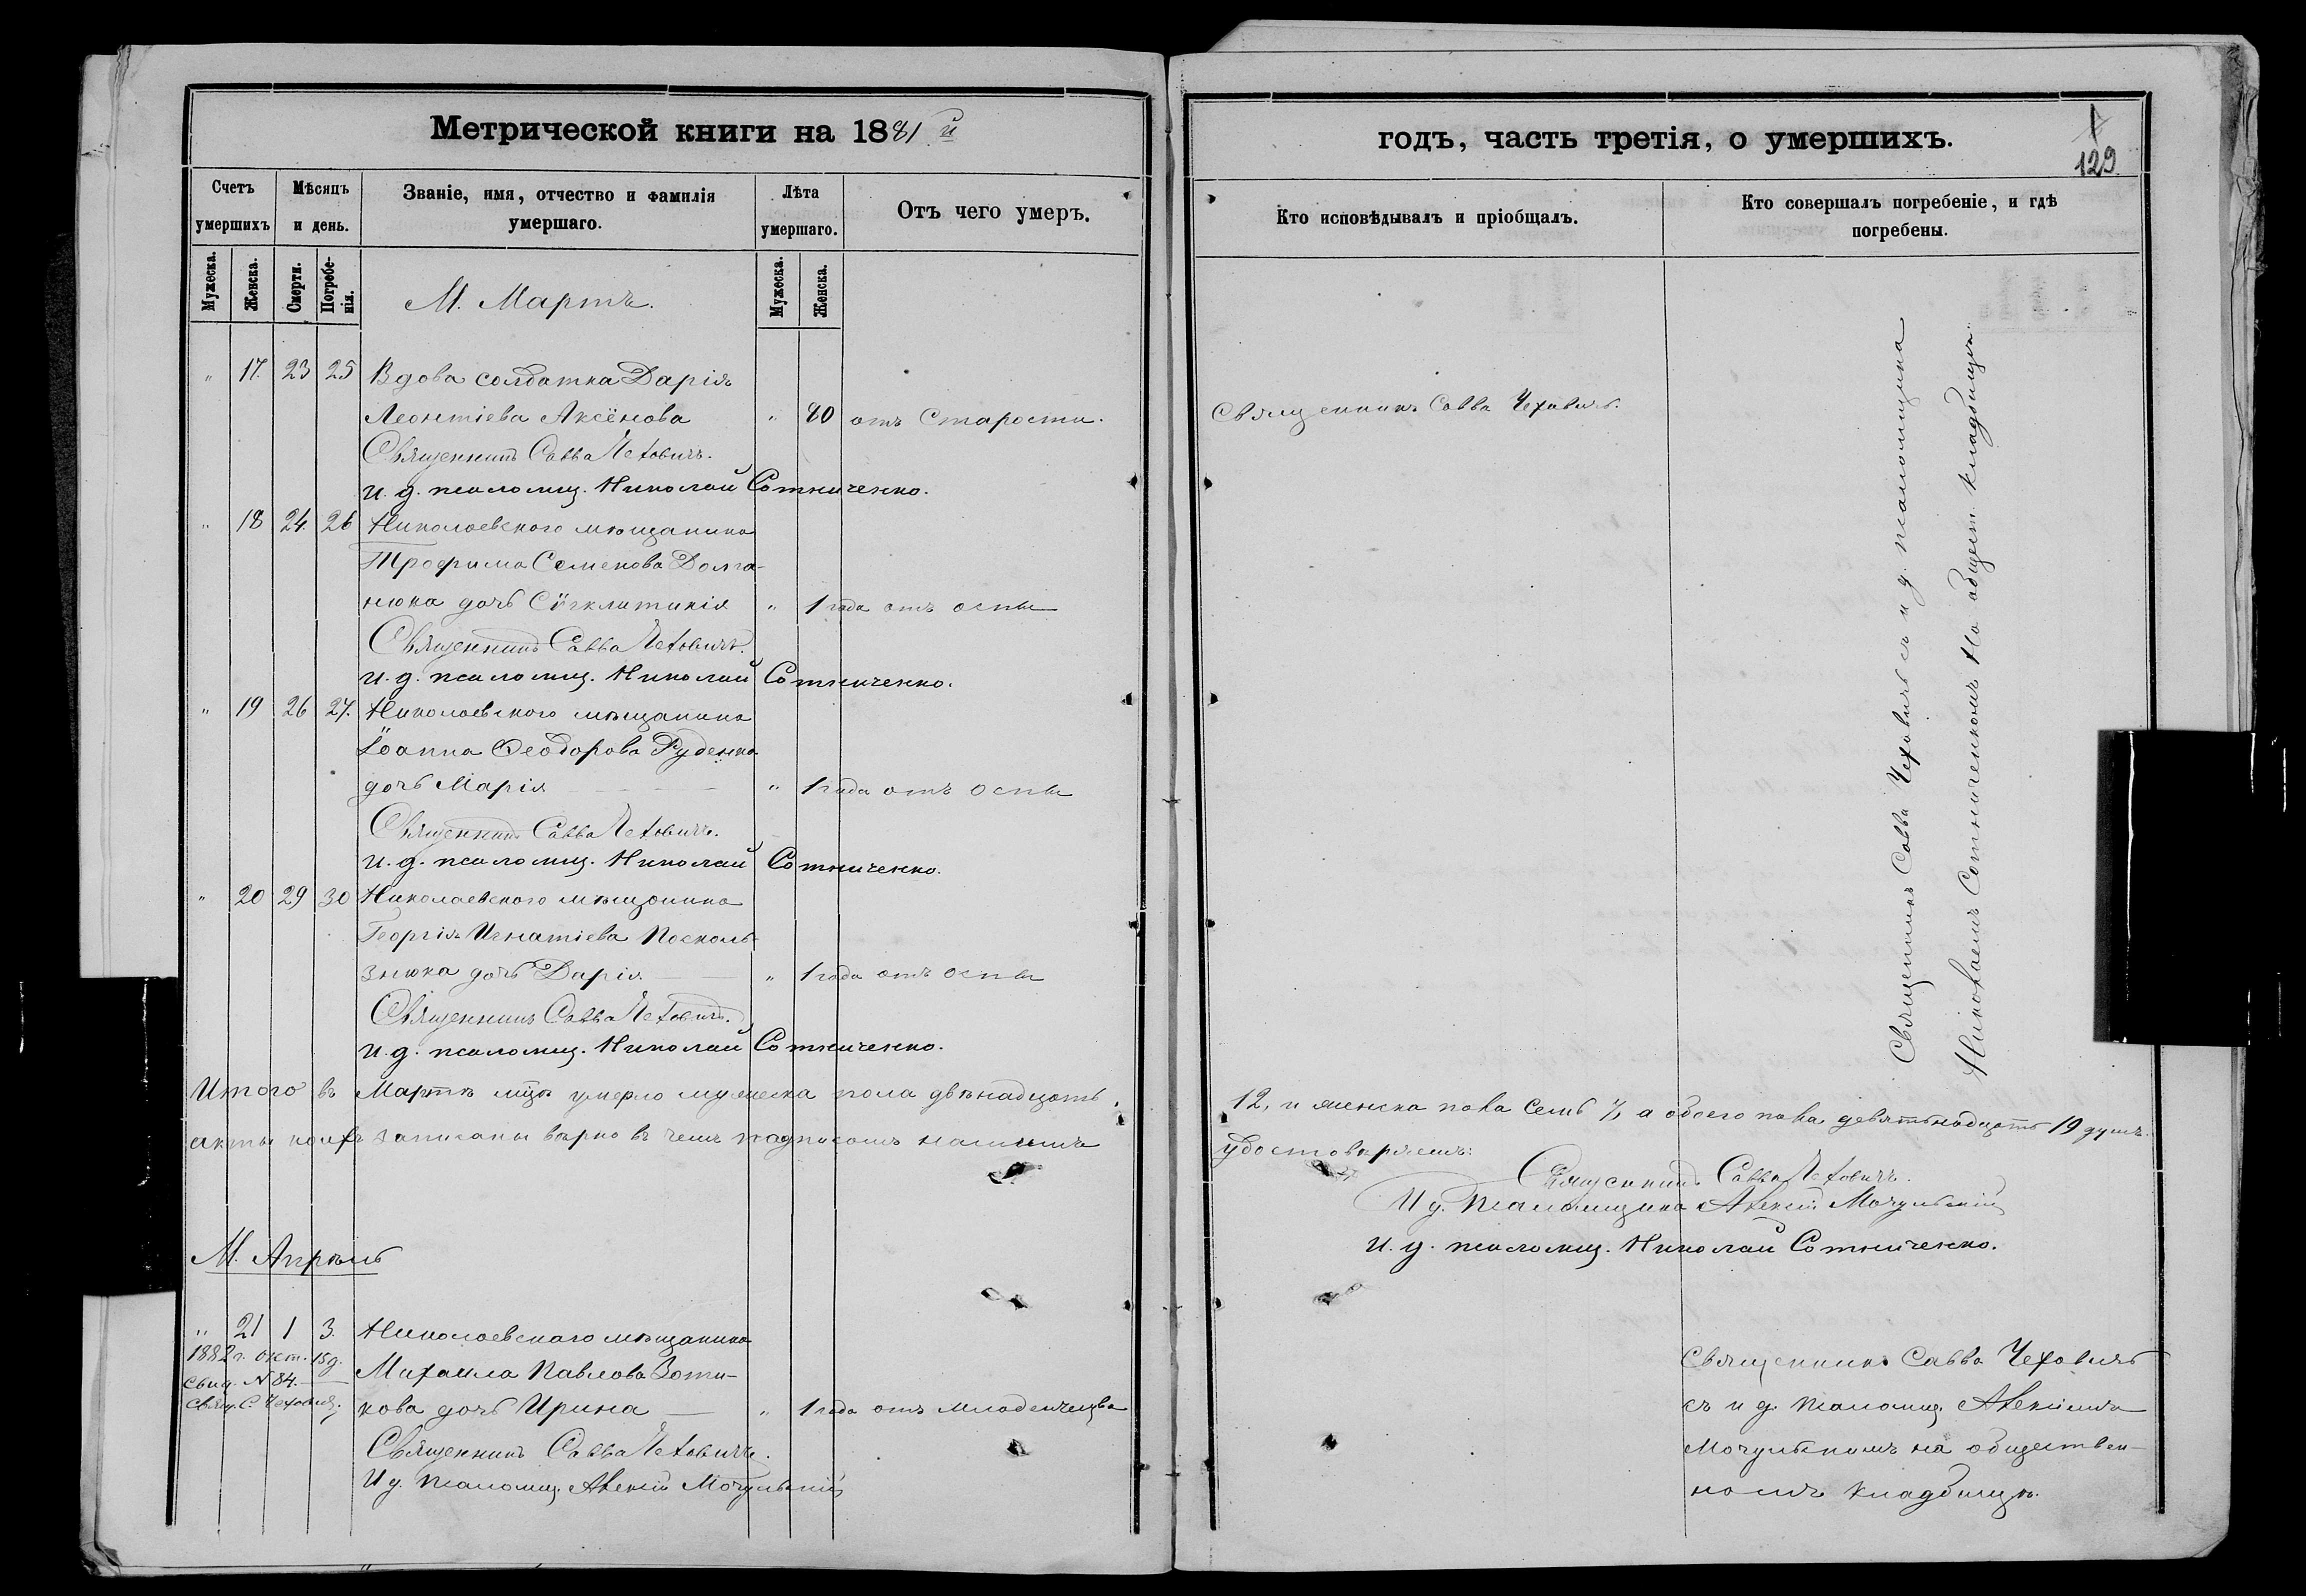 Метрической книги на 1881й
Счетъ умершихъ
Мѣсяцъ и день.
Званіе, имя, отчество и фамилія умершаго.
Лѣта умершаго.
Отъ чего умеръ.
Мужеска.
Женска.
Смерти.
Погребенія.
М. Мартъ.
Мужеска.
Женска.
" 17. 23 25 Вдова солдатка Дарія
Леонтіева Аксёнова " 80 отъ Старости.
Священникъ Савва Чеховичъ.
И. д. псаломщ. Николай Сотниченко.
" 18 24. 26 Николаевского мѣщанина
Трофима Семенова Долга-
нюка дочь Сѵгклитикія " 1 года отъ оспы
Священникъ Савва Чеховичъ.
И. д. псаломщ. Николай Сотниченко.
" 19 26 27. Николаевского мѣщанина
Іоанна Ѳеодорова Руденка
дочь Марія " 1 года отъ оспы
Священникъ Савва Чеховичъ.
И. д. псаломщ. Николай Сотниченко.
" 20 29 30 Николаевского мѣщанина
Георгія Игнатіева Посколь-
знюка дочь Дарія " 1 года отъ оспы
Священникъ Савва Чеховичъ.
И. д. псаломщ. Николай Сотниченко.
Итого въ Мартѣ мцѣ умерло мужеска пола двѣнадцать,
акты коихъ записаны вѣрно въ чемъ подписомъ нашимъ
М. Апрѣль
" 21 1 3. Николаевскаго мѣщанина
1882 г. окт. 15 д.
Свид. N 84.
Свящ. С. Чеховичъ.
Михаила Павлова Зоти-
кова дочь Ирина " 1 года отъ младенчества
Священникъ Савва Чеховичъ.
И д. псаломщ. Алексій Мочульскій
годъ, часть третія, о умершихъ.
129
Кто исповѣдывалъ и пріобщалъ.
Кто совершалъ погребеніе, и гдѣ погребены.
Священникъ Савва Чеховичъ.
Священникъ Савва Чеховичъ съ и д. псаломщика
Николаемъ Сотниченкомъ на общест. кладбищѣ.
12, и женска пола семь 7, а обоего пола девятьнадцать 19 душъ.
удостовѣряемъ:
Священникъ Савва Чеховичъ.
И д. Псаломщика Алексій Мочульскій
И. д. псаломщ. Николай Сотниченко.
Священникъ Савва Чеховичъ
съ и д. псаломщ. Алексіемъ
Мочульскимъ на обществен-
номъ кладбищѣ.